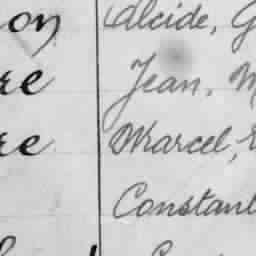 on Alcide, G
re Jean, M
re Marcel,
Constant